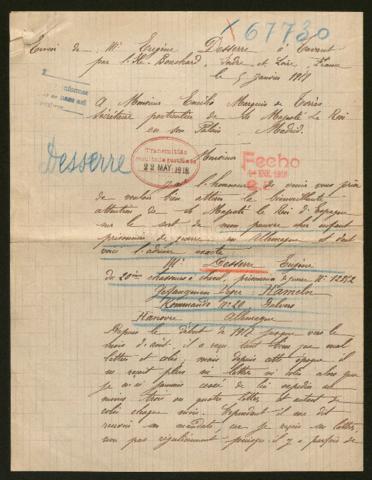 X 67730
Envoi de Mr Eugène Desserre à Tavant
par l'Ile Bouchard, Indre et Loire, France
le 5 Janvier 1918
A Monsieur Emilio Marquis de Torrès
Secrétaire particulier de Sa Majesté Le Roi
en son Palais Madrid.
Desserre
Monsieur
Transmitida
22 MAY. 1918
Fecho
ENE. 1918
l'honneur de venir vous prier
de vouloir bien attirer la bienveillante
attention de Sa Majesté le Roi d'Espagne
sur le sort de mon pauvre cher enfant
prisonnier de guerre en Allemagne et dont
voici l'adresse exacte
Mr Desserre Eugène
du 20ème chasseurs à cheval, prisonnier de guerre No
Gefangenen Lager Hameln
Kommando No 20
Hanovre Allemagne
Depuis le début de 1917 jusque vers le
mois d'août il a reçu tout bien que mal
lettres et colis, mais depuis cette époque il
ne reçoit plus ni lettres ni colis alors que
je n'ai jamais cessé de lui expédier au
moins trois ou quatre lettres et autant de
colis chaque mois. Cependant il me dit
recevoir les mandats, moi je reçois ses lettres
non pas régulièrement puisque il y a parfois de